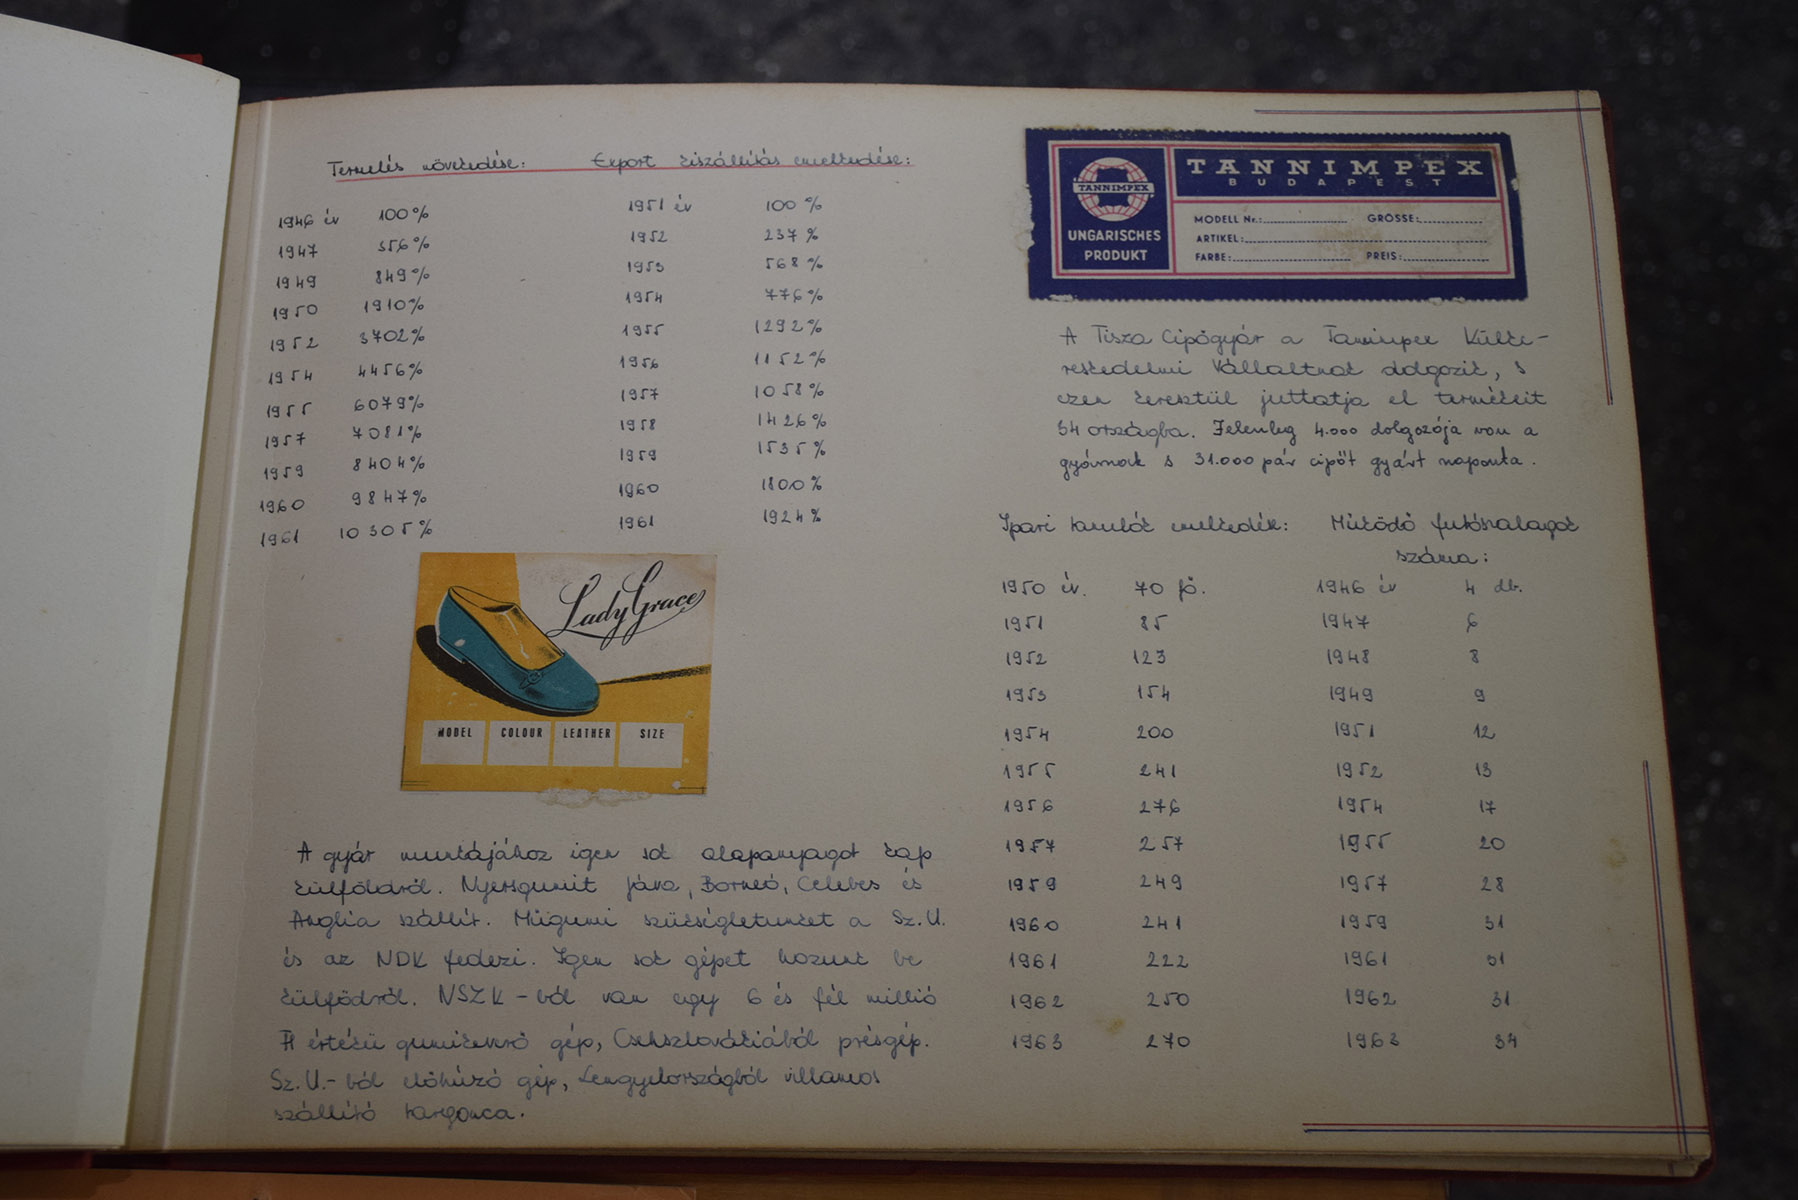 Termelés növekedése:
1946 év 100%
1947 356%
1949 849%
1950 1910%
1952 3702%
1954 4456%
1955 6079%
1957 7081%
1959 8404%
1960 9847%
1961 10305%
Export kiszállítás emelkedése:
1951 év 100%
1952 237%
1953 568%
1954 776%
1955 1292%
1956 1152%
1957 1058%
1958 1426%
1959 1535%
1960 1800%
1961 1924%
Lady Grace
MODEL COLOUR LEATHER SIZE
A gyár munkájához igen sok alapanyagot kap
külföldről. Nyersgumit Jáva, Borneó, Celebes és
Anglia szállít. Műgumi szükségletünket a Sz.U.
és az NDK fedezi. Igen sok gépet hozunk be
külfödről. NSZK-ból van egy 6 és fél millió
Ft értékü gumikeverő gép, Csehszlovákiából présgép.
Sz.U.-ból előhúzó gép, Lengyelországból villamos
szállító targonca.
TANNIMPEX
UNGARISCHES
PRODUKT
TANNIMPEX
BUDAPEST
MODELL Nr.: GRÖSSE:
ARTIKEL:
FARBE: PREIS:
A Tisza Cipőgyár a Tannimpex Külke-
reskedelmi Vállaltnak dolgozik, s
ezen keresztül juttatja el termékeit
54 országba. Jelenleg 4.000 dolgozója van a
gyárnak s 31.000 pár cipőt gyárt naponta.
Ipari tanulók emelkedék:
1950 év. 70 fő.
1951 85
1952 123
1953 154
1954 200
1955 241
1956 276
1957 257
1959 249
1960 241
1961 222
1962 250
1963 270
Müködő futószalagok
száma:
1946 év 4 db.
1947 6
1948 8
1949 9
1951 12
1952 13
1954 17
1955 20
1957 28
1959 31
1961 31
1962 31
1963 34